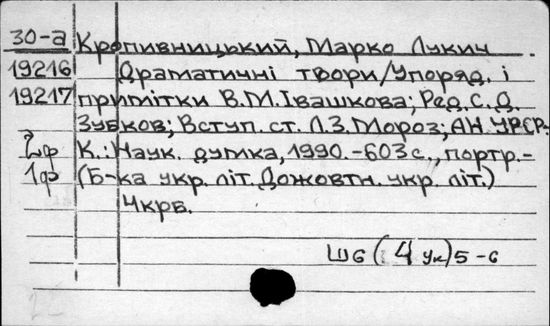 30-а Кропивницький, Марко Лукич
19216 Драматичні твори/Упоряд. і
19217 примітки В.М.Івашкова; Ред. С.Д.
Зубков; Вступ. ст. Л.З.Мороз; АН УРСР.-
2ф К.: Наук. думка, 1990.-603с., портр.-
1ф (Б-ка укр. літ. Дожовтн. укр. літ.)
Чкрб.
Ш6(4Ук)5-6